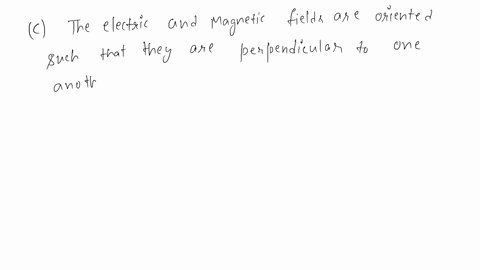 (C) The electric and magnetic fields are oriented
such that they are perpendicular to one
anoth